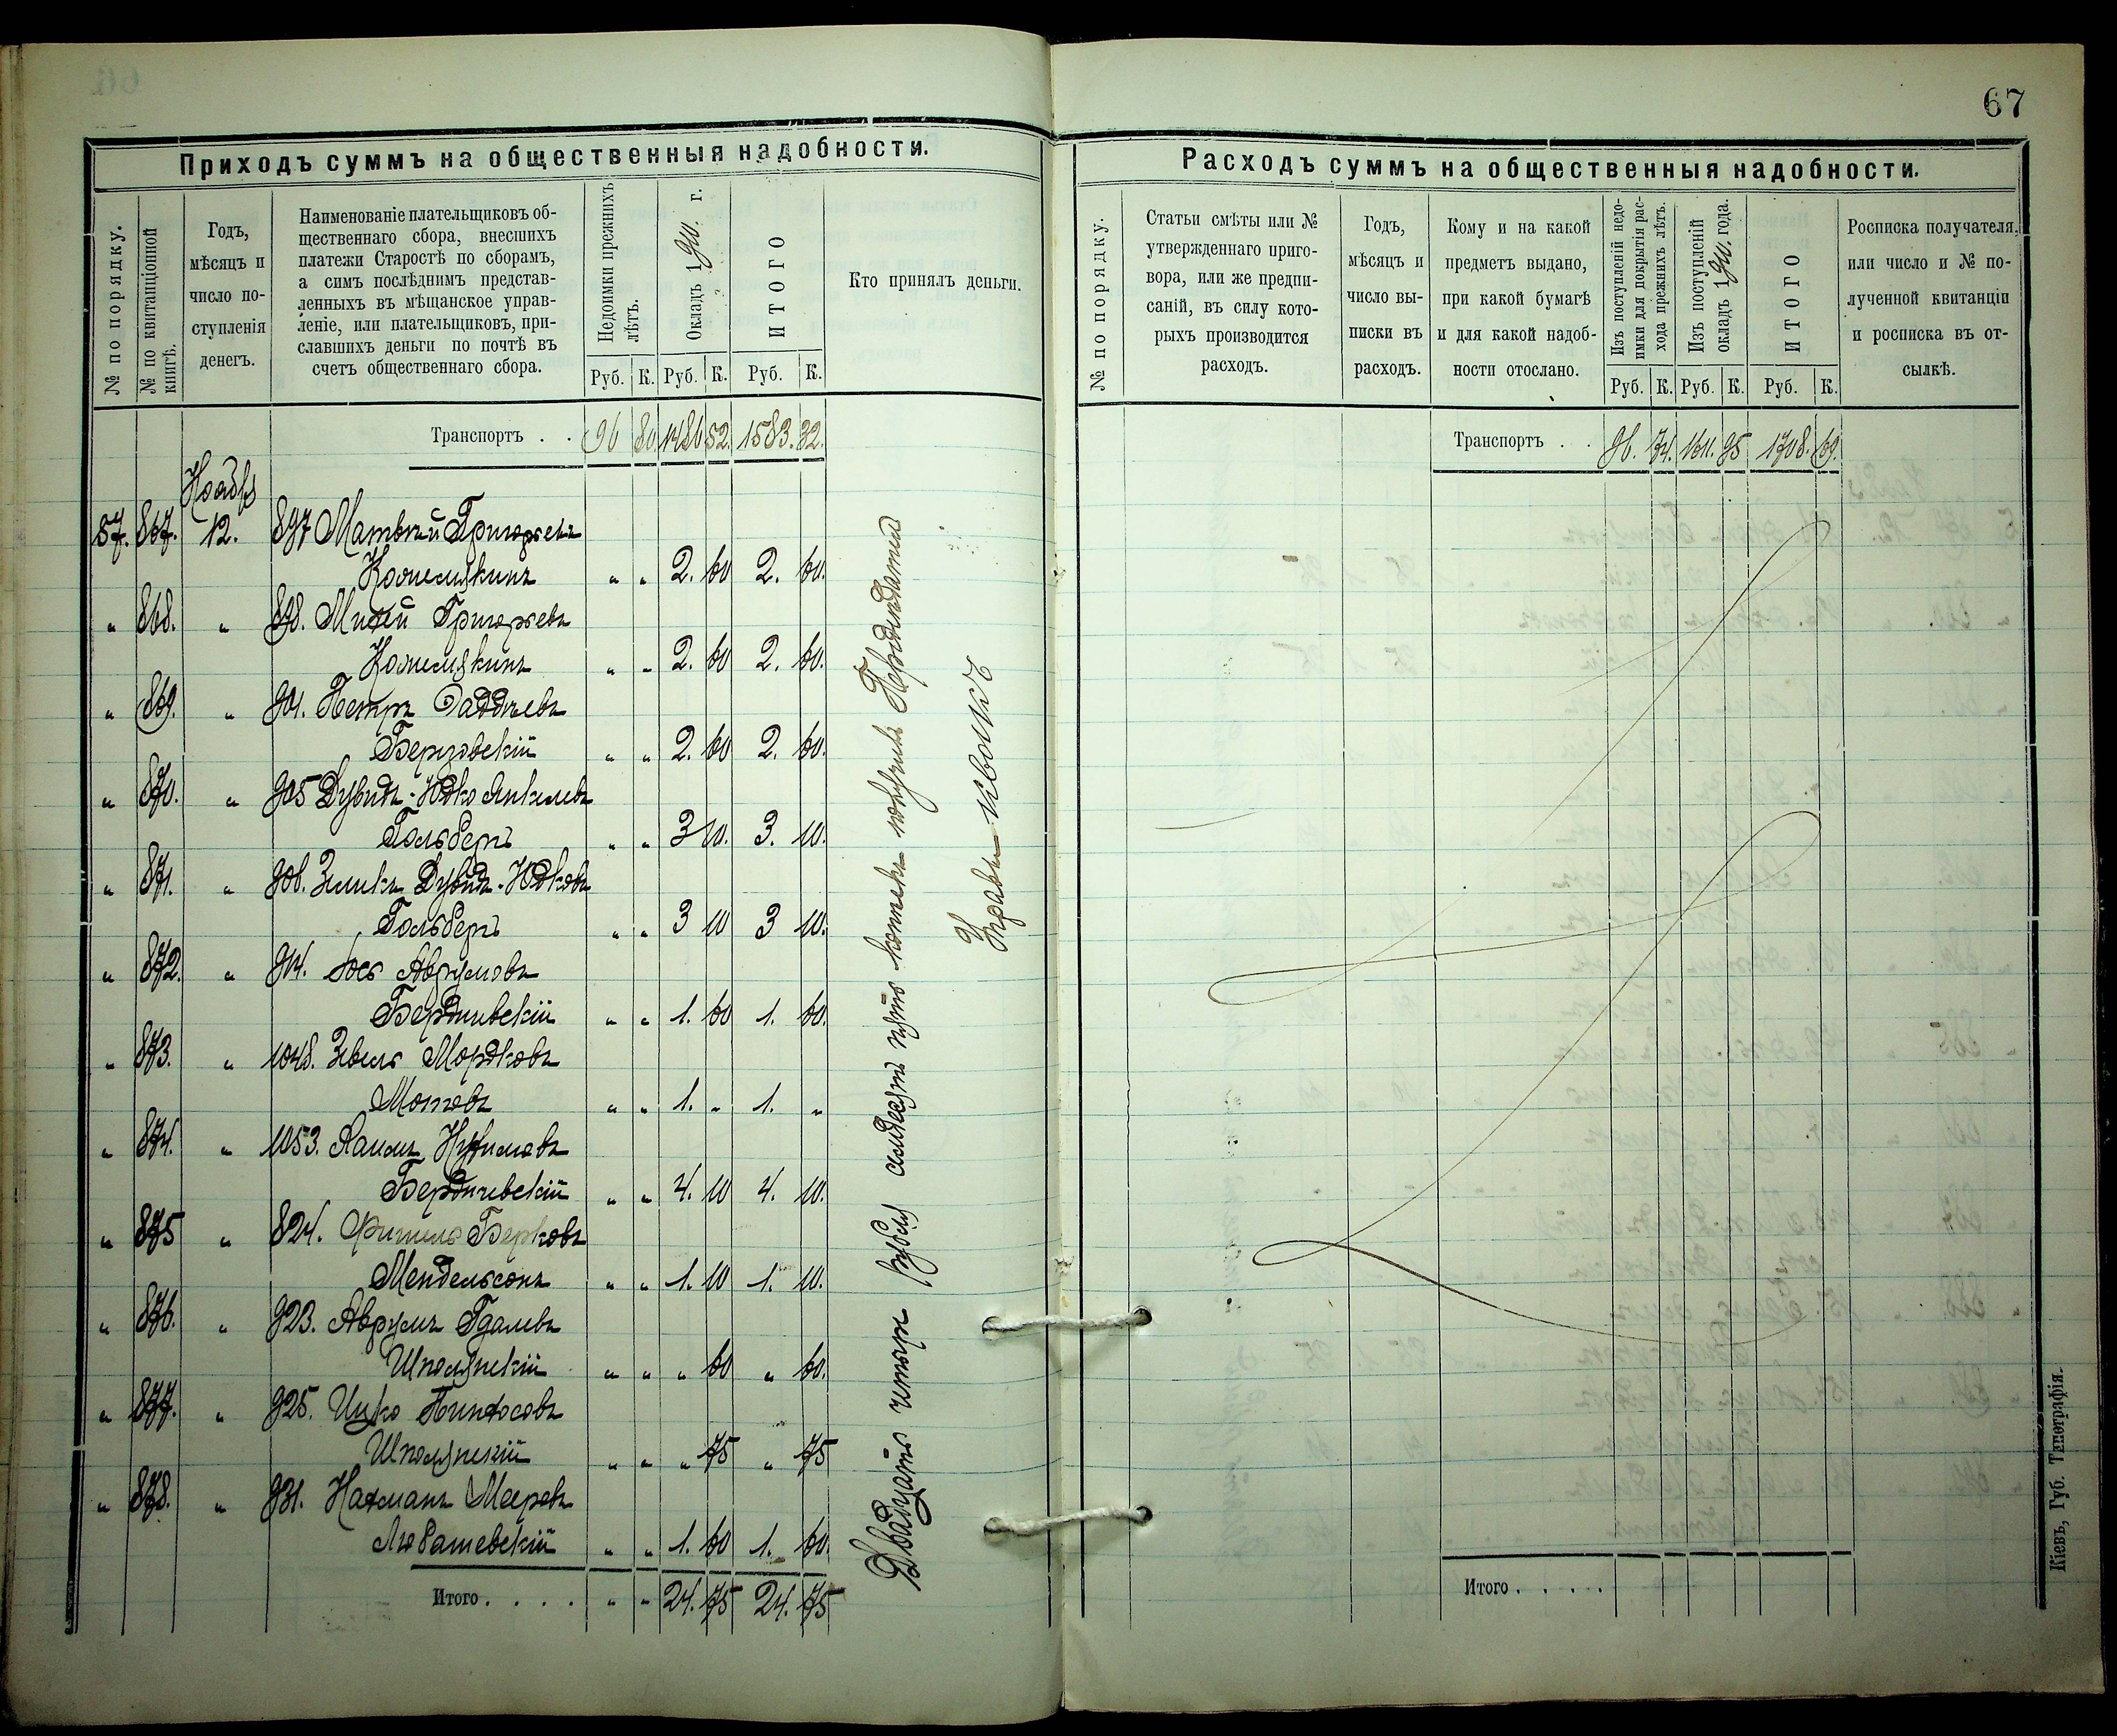 67
Приходъ суммъ на общественныя надобности.
№ по порядку.
№ по квитанціонной книгѣ.
Годъ,
мѣсяцъ и
число по-
ступленія
денегъ.
Наименованіе плательщиковъ об-
щественнаго сбора, внесшихъ
платежи Старостѣ по сборамъ,
а симъ послѣднимъ представ-
ленныхъ въ мѣщанское управ-
леніе, или плательщиковъ, при-
славшихъ деньги по почтѣ въ
счетъ общественнаго сбора.
Недоимки прежнихъ лѣтъ.
Окладъ 1910. г.
ИТОГО
Кто принялъ деньги.
Руб. К. Руб. К. Руб. К.
Транспортъ . . 96 80. 1486 52. 1583. 32.
Ноябр
57. 867. 12. 897 Матвѣй Григорьевъ
Коломязкинъ „ „ 2. 60 2. 60.
„ 868. „ 898. Михей Григорьевъ
Коломязкинъ „ „ 2. 60 2. 60.
„ 869. „ 901. Петръ Фаддѣевъ
Березовскій „ „ 2. 60 2. 60.
„ 870. „ 905 Дувидъ-Юдко Анкелевъ
Гольберъ „ „ 3 10. 3. 10.
„ 871. „ 906. Зеликъ Дувидъ-Юдковъ
Гольберъ „ „ 3 10 3 10.
„ 872. „ 914. Іось Аврумовъ
Бердичевскій „ „ 1. 60 1. 60.
„ 873. „ 1048. Зевель Мордковъ
Мотовъ „ „ 1. „ 1. „
„ 874. „ 1053. Хаимъ Нухимовъ
Бердичевскій „ „ 4. 10 4. 10.
„ 875 „ 824. Фишель Берковъ
Мендельсонъ „ „ 1. 10 1. 10.
„ 876. „ 923. Аврумъ Гдалевъ
Шполянскій „ „ „ 60 „ 60.
„ 877. „ 925. Ицко Пинхосовъ
Шполянскій „ „ „ 75 „ 75
„ 878. „ 931. Нахманъ Мееровъ
Любашевскій „ „ 1. 60 1. 60.
Итого . . . . „ „ 24. 75 24. 75
Двадцать четыре рубля семьдесятъ пять копѣекъ
Управы
Расходъ суммъ на общественныя надобности.
№ по порядку.
Статьи смѣты или №
утвержденнаго приго-
вора, или же предпи-
саній, въ силу кото-
рыхъ производится
расходъ.
Годъ,
мѣсяцъ и
число вы-
писки въ
расходъ.
Кому и на какой
предметъ выдано,
при какой бумагѣ
и для какой надоб-
ности отослано.
Изъ поступленій недо-
имки для покрытія рас-
хода прежнихъ лѣтъ.
Изъ поступленій
окладъ 1910. года.
ИТОГО
Росписка получателя,
или число и № по-
лученной квитанціи
и росписка въ от-
сылкѣ.
Руб. К. Руб. К. Руб. К.
Транспортъ . . 96. 74. 1611. 95 1708. 69.
Итого . . . . .
Кіевъ, Губ. Типографія.